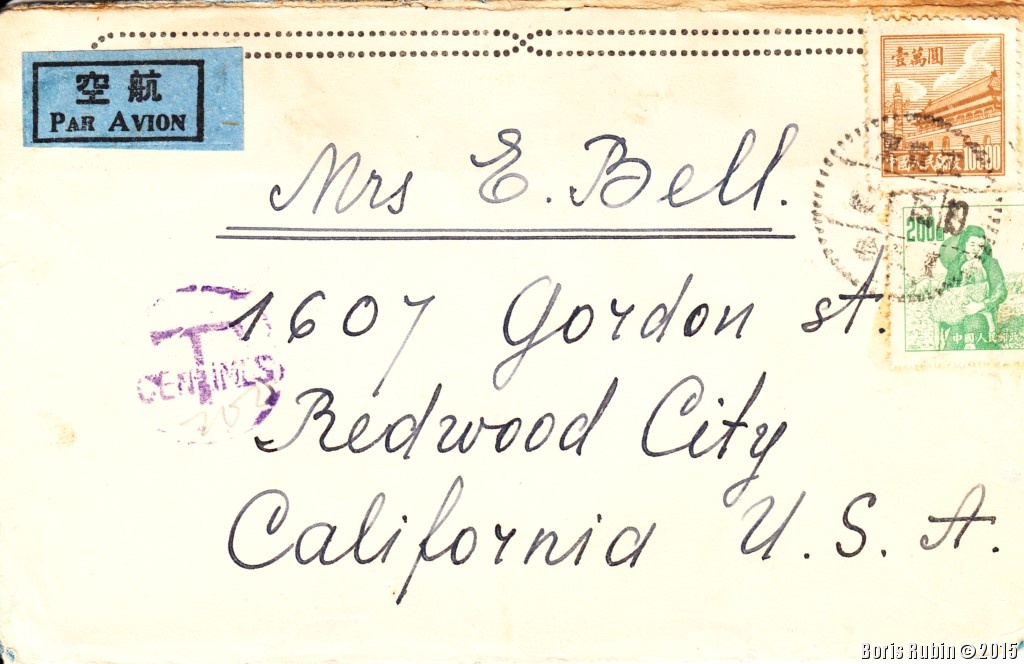 空航
PAR AVION
壹萬圓
中國人民郵政 10000
Mrs E. Bell.
200
中國人民郵政
T
CENTIMES
1607 Gordon st.
Redwood City
California U. S. A.
Boris Rubin © 2015